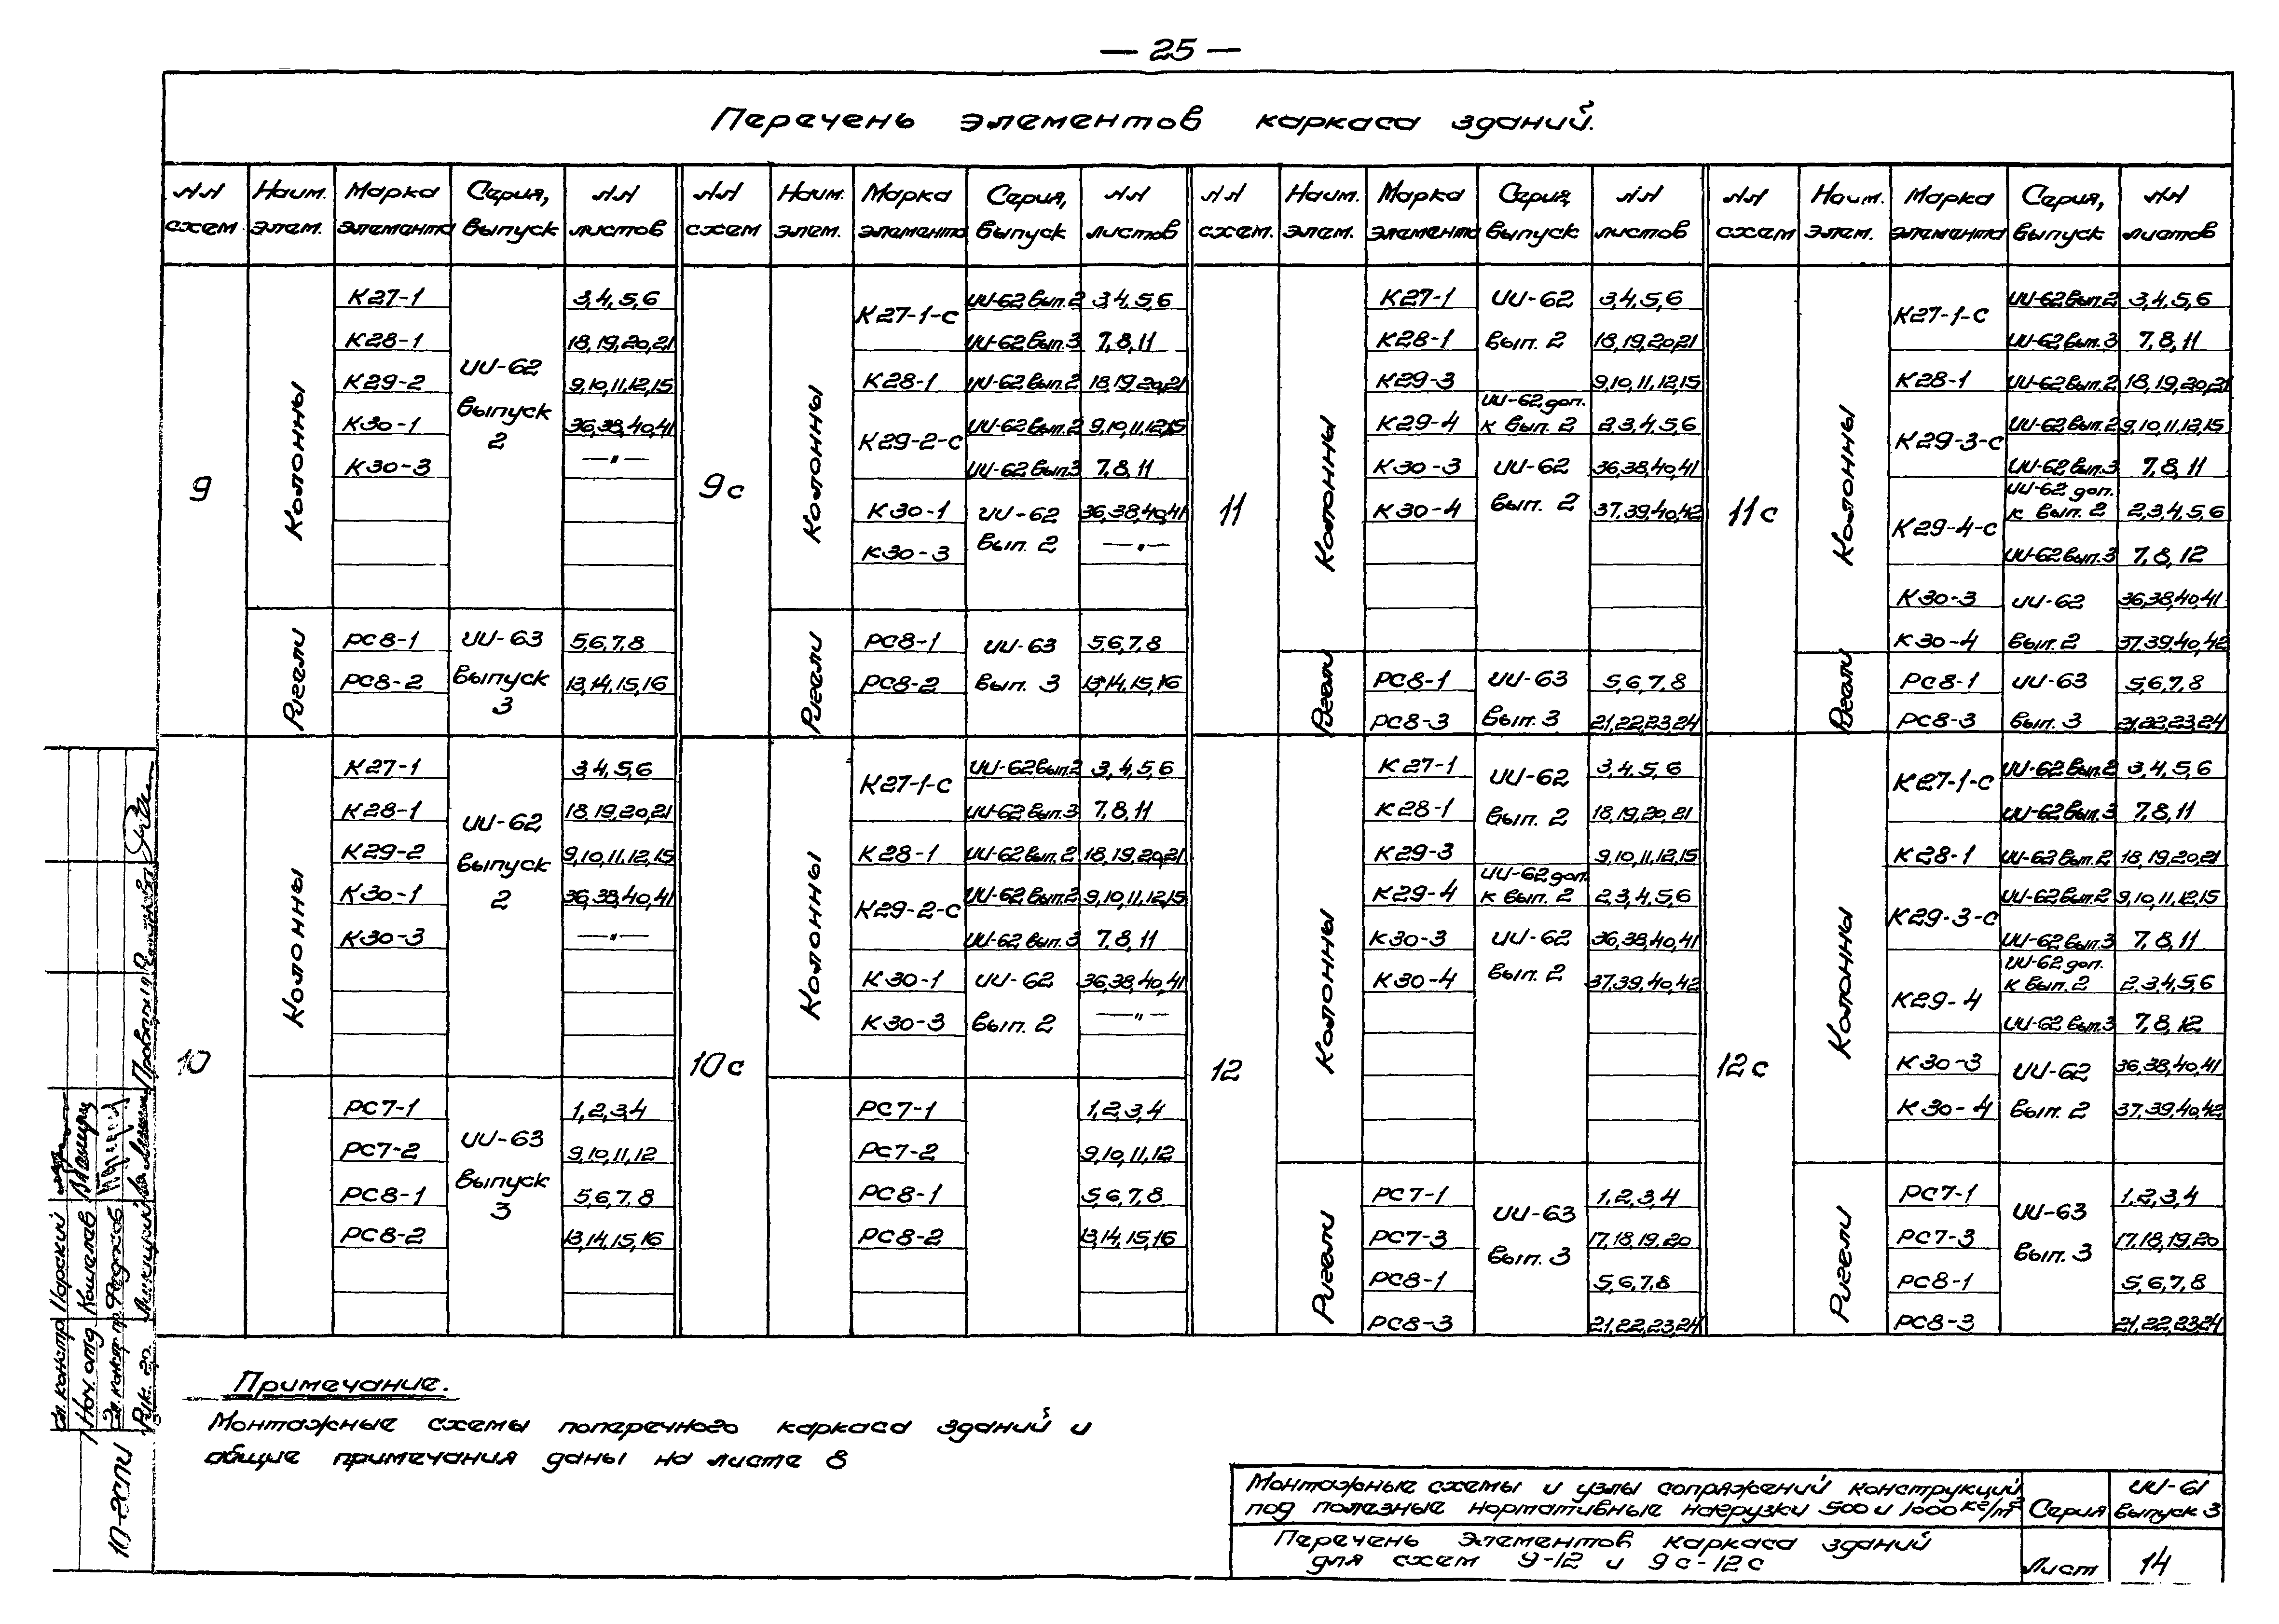 — 25 —
Перечень элементов каркаса зданий.
NN схем
Наим. элем.
Марка элемента
Серия, выпуск
NN листов
NN схем
Наим. элем.
Марка элемента
Серия, выпуск
NN листов
NN схем.
Наим. элем.
Марка элемента
Серия, выпуск
NN листов
NN схем
Наим. элем.
Марка элемента
Серия, выпуск
NN листов
9
Колонны
К27-1 3,4,5,6
К28-1 18,19,20,21
К29-2 9,10,11,12,15
К30-1 36,38,40,41
К30-3 —"—
ИИ-62
выпуск
2
Ригели
РС8-1 5,6,7,8
РС8-2 13,14,15,16
ИИ-63
выпуск
3
9с
Колонны
К27-1-с
ИИ-62 вып.2 3,4,5,6
ИИ-62 вып.3 7,8,11
К28-1 ИИ-62 вып.2 18,19,20,21
К29-2-с
ИИ-62 вып.2 9,10,11,12,15
ИИ-62 вып.3 7,8,11
К30-1 ИИ-62 36,38,40,41
К30-3 вып. 2 —"—
Ригели
РС8-1 ИИ-63 5,6,7,8
РС8-2 вып. 3 13,14,15,16
11
Колонны
К27-1 ИИ-62 3,4,5,6
К28-1 вып. 2 18,19,20,21
К29-3 9,10,11,12,15
ИИ-62 доп.
К29-4 к вып. 2 2,3,4,5,6
К30-3 ИИ-62 36,38,40,41
К30-4 вып. 2 37,39,40,42
Ригели
РС8-1 ИИ-63 5,6,7,8
РС8-3 вып. 3 21,22,23,24
11с
Колонны
К27-1-с
ИИ-62 вып.2 3,4,5,6
ИИ-62 вып.3 7,8,11
К28-1 ИИ-62 вып.2 18,19,20,21
К29-3-с
ИИ-62 вып.2 9,10,11,12,15
ИИ-62 вып.3 7,8,11
К29-4-с
ИИ-62 доп.
к вып. 2 2,3,4,5,6
ИИ-62 вып.3 7,8,12
К30-3 ИИ-62 36,38,40,41
К30-4 вып. 2 37,39,40,42
Ригели
РС8-1 ИИ-63 5,6,7,8
РС8-3 вып. 3 21,22,23,24
10
Колонны
К27-1 3,4,5,6
К28-1 18,19,20,21
К29-2 9,10,11,12,15
К30-1 36,38,40,41
К30-3 —"—
ИИ-62
выпуск
2
РС7-1 1,2,3,4
РС7-2 9,10,11,12
РС8-1 5,6,7,8
РС8-2 13,14,15,16
ИИ-63
выпуск
3
10с
Колонны
К27-1-с
ИИ-62 вып.2 3,4,5,6
ИИ-62 вып.3 7,8,11
К28-1 ИИ-62 вып.2 18,19,20,21
К29-2-с
ИИ-62 вып.2 9,10,11,12,15
ИИ-62 вып.3 7,8,11
К30-1 ИИ-62 36,38,40,41
К30-3 вып. 2 —"—
РС7-1 1,2,3,4
РС7-2 9,10,11,12
РС8-1 5,6,7,8
РС8-2 13,14,15,16
12
Колонны
К27-1 ИИ-62 3,4,5,6
К28-1 вып. 2 18,19,20,21
К29-3 9,10,11,12,15
ИИ-62 доп.
К29-4 к вып. 2 2,3,4,5,6
К30-3 ИИ-62 36,38,40,41
К30-4 вып. 2 37,39,40,42
Ригели
РС7-1 1,2,3,4
РС7-3 17,18,19,20
РС8-1 5,6,7,8
РС8-3 21,22,23,24
ИИ-63
вып. 3
12с
Колонны
К27-1-с
ИИ-62 вып.2 3,4,5,6
ИИ-62 вып.3 7,8,11
К28-1 ИИ-62 вып.2 18,19,20,21
К29-3-с
ИИ-62 вып.2 9,10,11,12,15
ИИ-62 вып.3 7,8,11
К29-4
ИИ-62 доп.
к вып. 2 2,3,4,5,6
ИИ-62 вып.3 7,8,12
К30-3 ИИ-62 36,38,40,41
К30-4 вып. 2 37,39,40,42
Ригели
РС7-1 1,2,3,4
РС7-3 17,18,19,20
РС8-1 5,6,7,8
РС8-3 21,22,23,24
ИИ-63
вып. 3
Примечание.
Монтажные схемы поперечного каркаса зданий и
общие примечания даны на листе 8
Монтажные схемы и узлы сопряжений конструкций
под полезные нормативные нагрузки 500 и 1000 кг/м²
Серия
ИИ-61
выпуск 3
Перечень элементов каркаса зданий
для схем 9-12 и 9с-12с
Лист
14
Гл. констр.
Нач. отд. Кошелев
Гл. констр. пр. Федюков
Рук. гр.